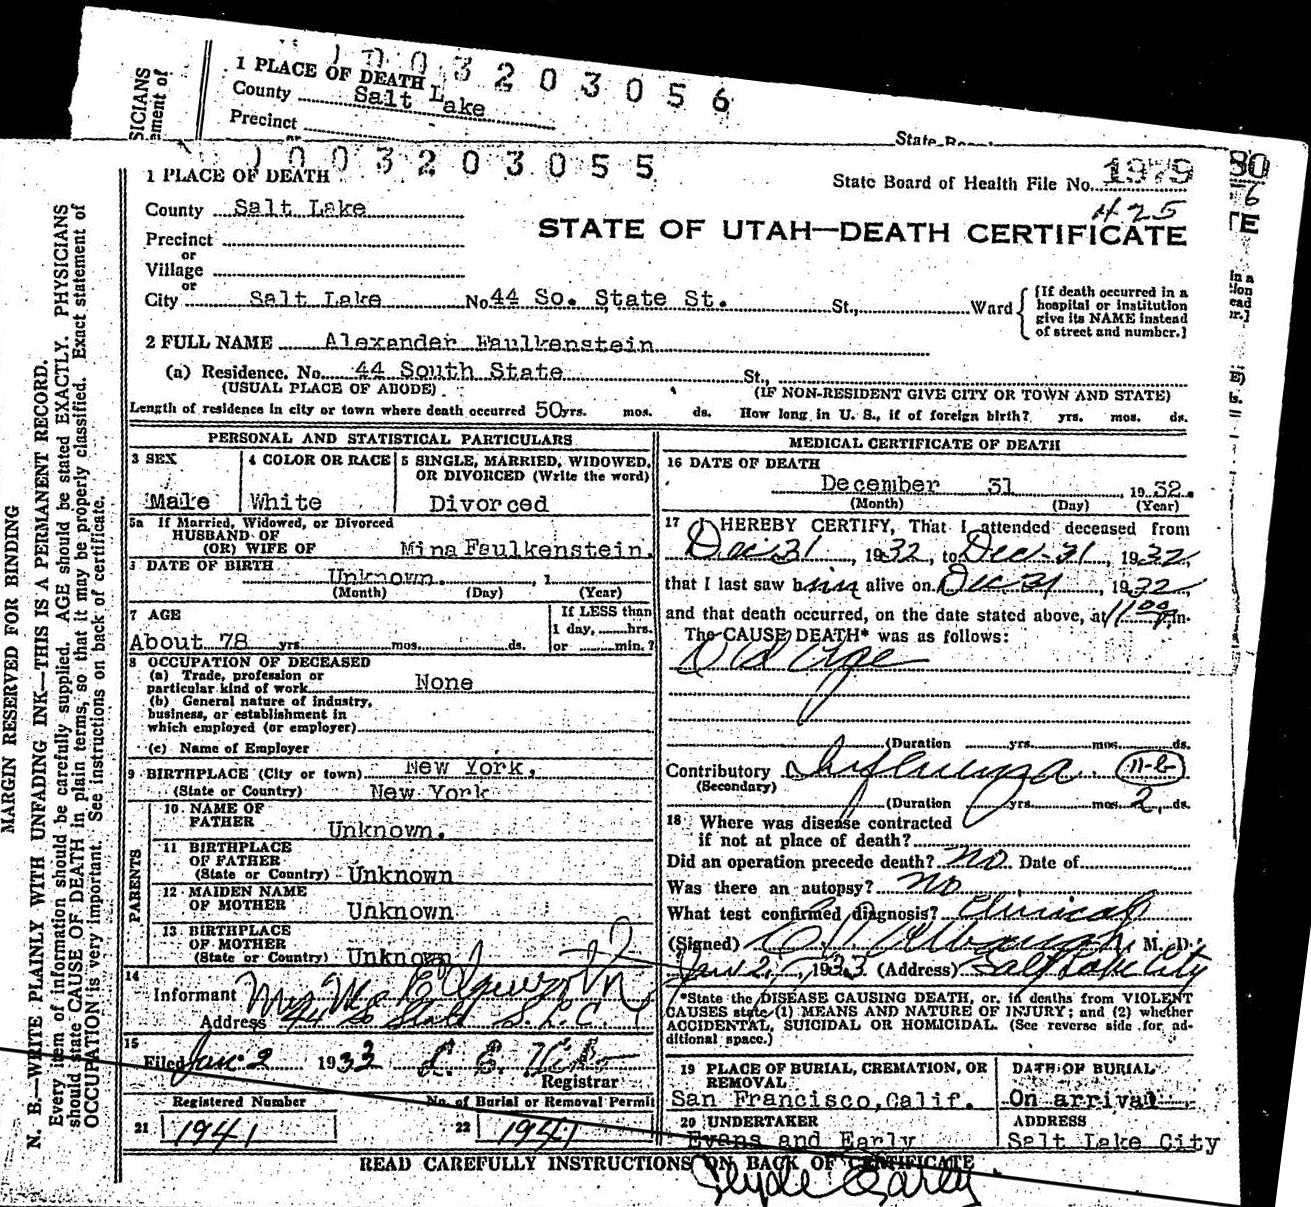 1003203056
1 PLACE OF DEATH
County Salt Lake
Precinct
or
State
SICIANS
ement of
1003203055
1 PLACE OF DEATH
State Board of Health File No. 1979
425
80
6
TE
County Salt Lake
STATE OF UTAH—DEATH CERTIFICATE
Precinct
or
Village
or
City Salt Lake No. 44 So. State St. St., Ward
{If death occurred in a
hospital or institution
give its NAME instead
of street and number.}
2 FULL NAME Alexander Faulkenstein
(a) Residence. No. 44 South State St.,
(USUAL PLACE OF ABODE) (IF NON-RESIDENT GIVE CITY OR TOWN AND STATE)
Length of residence in city or town where death occurred 50 yrs. mos. ds. How long in U. S., if of foreign birth? yrs. mos. ds.
PERSONAL AND STATISTICAL PARTICULARS
3 SEX
Male
4 COLOR OR RACE
White
5 SINGLE, MARRIED, WIDOWED,
OR DIVORCED (Write the word)
Divorced
5a If Married, Widowed, or Divorced
HUSBAND OF
(OR) WIFE OF Mina Faulkenstein.
DATE OF BIRTH
Unknown. , 1
(Month) (Day) (Year)
7 AGE
About 78 yrs. mos. ds.
If LESS than
1 day, hrs.
or min.?
8 OCCUPATION OF DECEASED
(a) Trade, profession or
particular kind of work None
(b) General nature of industry,
business, or establishment in
which employed (or employer)
(c) Name of Employer
9 BIRTHPLACE (City or town) New York.
(State or Country) New York
PARENTS
10 NAME OF
FATHER Unknown.
11 BIRTHPLACE
OF FATHER
(State or Country) Unknown
12 MAIDEN NAME
OF MOTHER
Unknown
13 BIRTHPLACE
OF MOTHER
(State or Country) Unknown
14
Informant Mrs
Address 44 So State S.L.C.
15
Filed Jan 2 1933 L. E.
Registrar
Registered Number
No. of Burial or Removal Permit
21 1941
22 1941
MEDICAL CERTIFICATE OF DEATH
16 DATE OF DEATH
December 31, 1932.
(Month) (Day) (Year)
17 I HEREBY CERTIFY, That I attended deceased from
Dec 31, 1932, to Dec. 31, 1932,
that I last saw him alive on Dec 31, 1932,
and that death occurred, on the date stated above, at 11:00 P.m.
The CAUSE DEATH* was as follows:
Old Age
(Duration yrs. mos. ds.
Contributory Influenza 11-b
(Secondary)
(Duration yrs. mos. 2 ds.
18 Where was disease contracted
if not at place of death?
Did an operation precede death? No Date of
Was there an autopsy? No
What test confirmed diagnosis? Clinical
(Signed) M. D.
Jan 2, 1933 (Address) Salt Lake City
*State the DISEASE CAUSING DEATH, or, in deaths from VIOLENT
CAUSES state (1) MEANS AND NATURE OF INJURY; and (2) whether
ACCIDENTAL, SUICIDAL OR HOMICIDAL. (See reverse side for ad-
ditional space.)
19 PLACE OF BURIAL, CREMATION, OR
REMOVAL
San Francisco, Calif.
DATE OF BURIAL
On arrival
20 UNDERTAKER
Evans and Early
ADDRESS
Salt Lake City
READ CAREFULLY INSTRUCTIONS ON BACK OF CERTIFICATE
Clyde Early
MARGIN RESERVED FOR BINDING
N. B.—WRITE PLAINLY WITH UNFADING INK—THIS IS A PERMANENT RECORD.
Every item of information should be carefully supplied. AGE should be stated EXACTLY. PHYSICIANS
should state CAUSE OF DEATH in plain terms, so that it may be properly classified. Exact statement of
OCCUPATION is very important. See instructions on back of certificate.